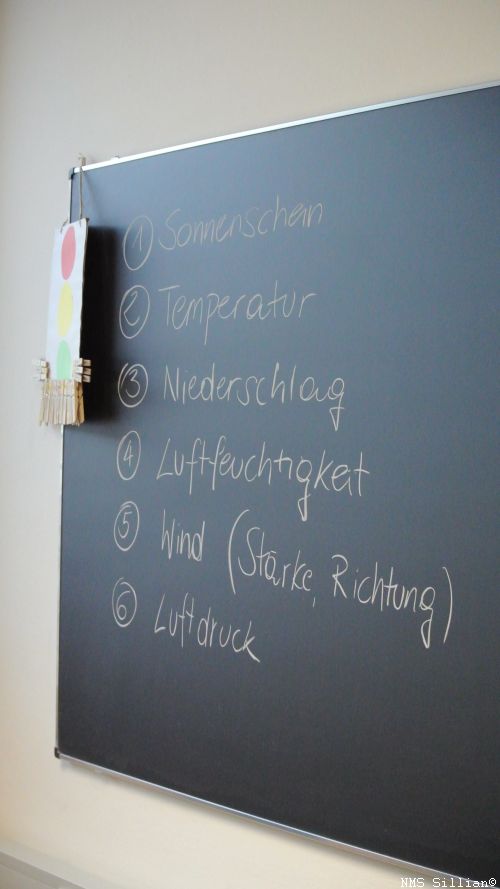 ① Sonnenschein
② Temperatur
③ Niederschlag
④ Luftfeuchtigkeit
⑤ Wind (Stärke, Richtung)
⑥ Luftdruck
NMS Sillian©